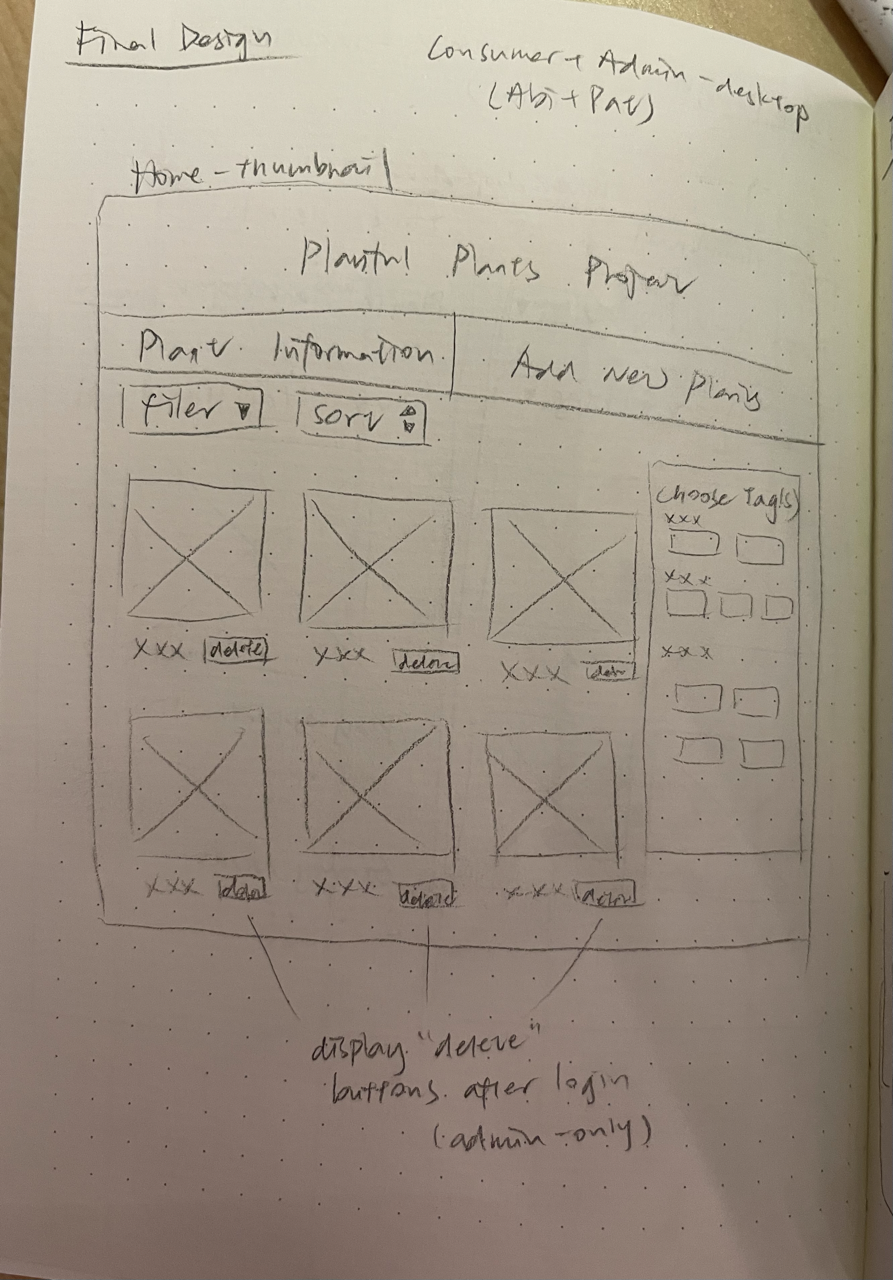 Final Design
Consumer + Admin - desktop
(Abi + Pat)
Home - thumbnail
Plantful Plants Project
Plant Information
Add New Plants
filer ▼
sort
Choose Tag(s)
xxx
xxx
xxx
xxx delete
xxx delete
xxx
xxx delete
xxx delete
xxx delete
display "delete"
buttons after login
(admin-only)